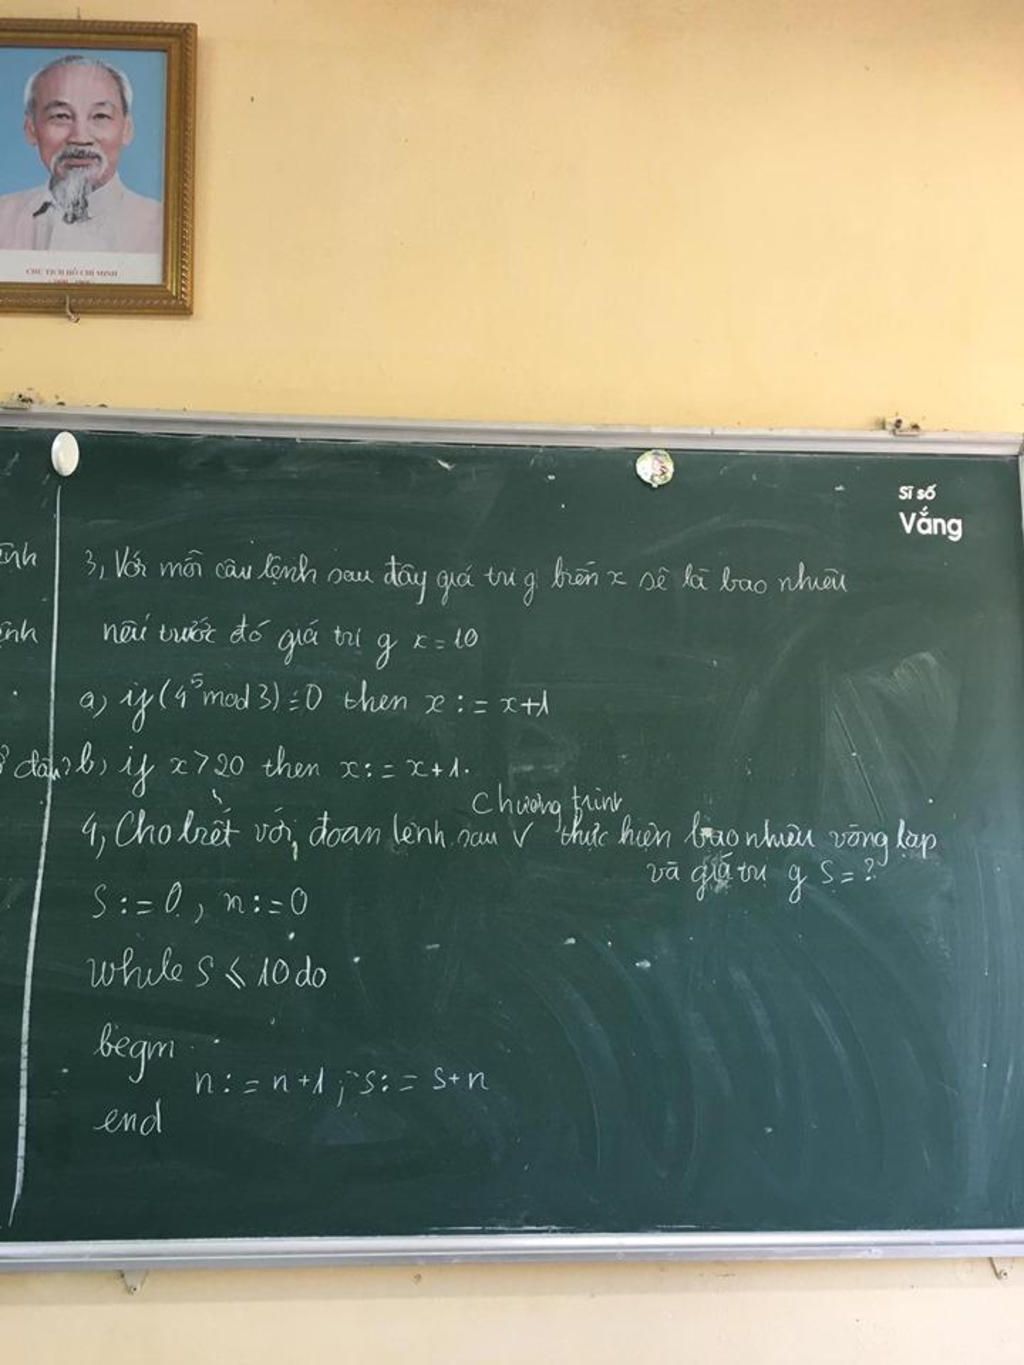 CHỦ TỊCH HỒ CHÍ MINH
Sĩ số
Vắng
ệnh
3, Với mỗi câu lệnh sau đây giá trị g biến x sẽ là bao nhiêu
ệnh
nếu trước đó giá trị g x = 10
a, if (4⁵ mod 3) = 0 then x := x+1
đâu?
b, if x > 20 then x: = x+1.
chương trình
4, Cho biết với, đoạn lệnh sau V thực hiện bao nhiêu vòng lặp
và giá trị g S = ?
S := 0, n := 0
while S ⩽ 10 do
begin
n : = n+1 ; s: = s+n
end